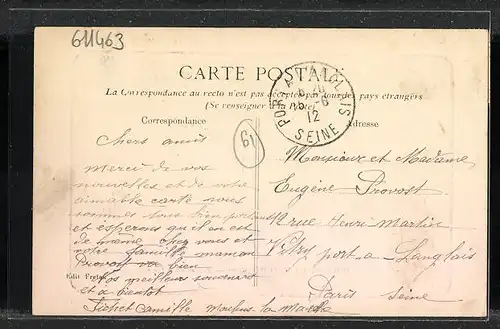 611463
CARTE POSTALE
La Correspondance au recto n'est pas acceptée par tous les pays étrangers
(Se renseigner à la Poste)
Correspondance
Adresse
PORT A L'ANGLAIS
12
SEINE
61
Chers amis
Merci de vos
nouvelles et de votre
aimable carte nous
sommes tous bien portants
et esperons qu'il en est
de meme chez vous et
votre famille maman
Provost va bien
Vos meilleurs souvenirs
et a bientot
Fichet Camille la Marche
Edit. Fretet
Monsieur et Madame
Eugène Provost
rue Henri Martin
Vitry port a Langlais
Paris Seine